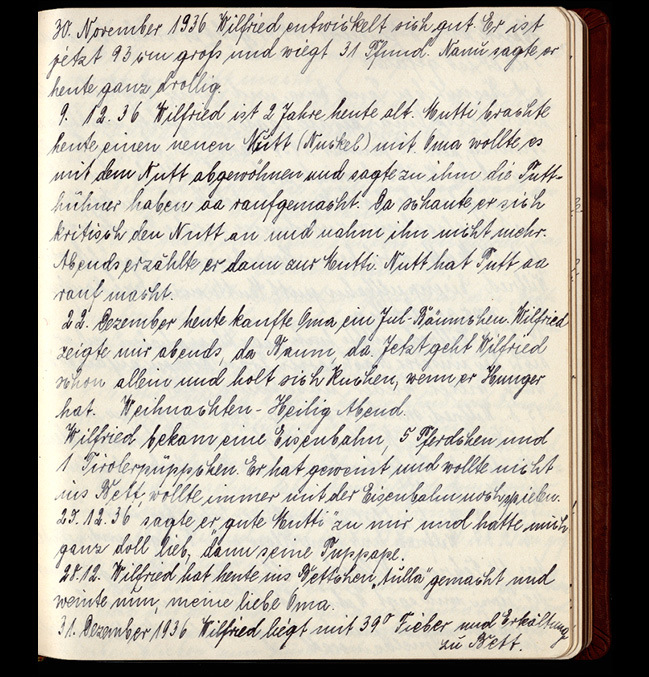 30. November 1936 Wilfried entwickelt sich gut. Er ist
jetzt 93 cm groß und wiegt 31 Pfund. Nanu sagte er
heute ganz drollig.
9. 12. 36 Wilfried ist 2 Jahre heute alt. Mutti brachte
heute einen neuen Nutt (Nuckel) mit. Oma wollte es
mit dem Nutt abgewöhnen und sagte zu ihm die Putt-
hühner haben aa raufgemacht. Da schaute er sich
kritisch den Nutt an und nahm ihn nicht mehr.
Abends erzählte er dann zur Mutti. Nutt hat Putt aa
rauf macht.
22. Dezember heute kaufte Oma ein Jul-Bäumchen. Wilfried
zeigte mir abends, da Baum, da. Jetzt geht Wilfried
schon allein und holt sich Kuchen, wenn er Hunger
hat. Weihnachten - Heilig Abend.
Wilfried bekam eine Eisenbahn, 5 Pferdchen und
1 Tirolerpüppchen. Er hat geweint und wollte nicht
ins Bett, wollte immer mit der Eisenbahn noch spielen.
25.12.36 sagte er "gute Mutti" zu mir und hatte mich
ganz doll lieb, dann seine
28.12. Wilfried hat heute ins Bettchen „Lulla" gemacht und
weinte nun, meine liebe Oma.
31. Dezember 1936 Wilfried liegt mit 39° Fieber und Erkältung
zu Bett.